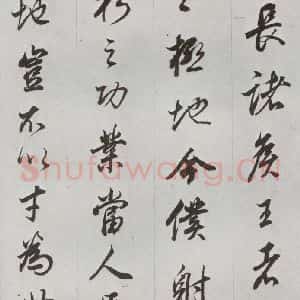 長諸侯王者
極地今僕射
朽之功業當人
地豈不以才為世
Shufawang.cn